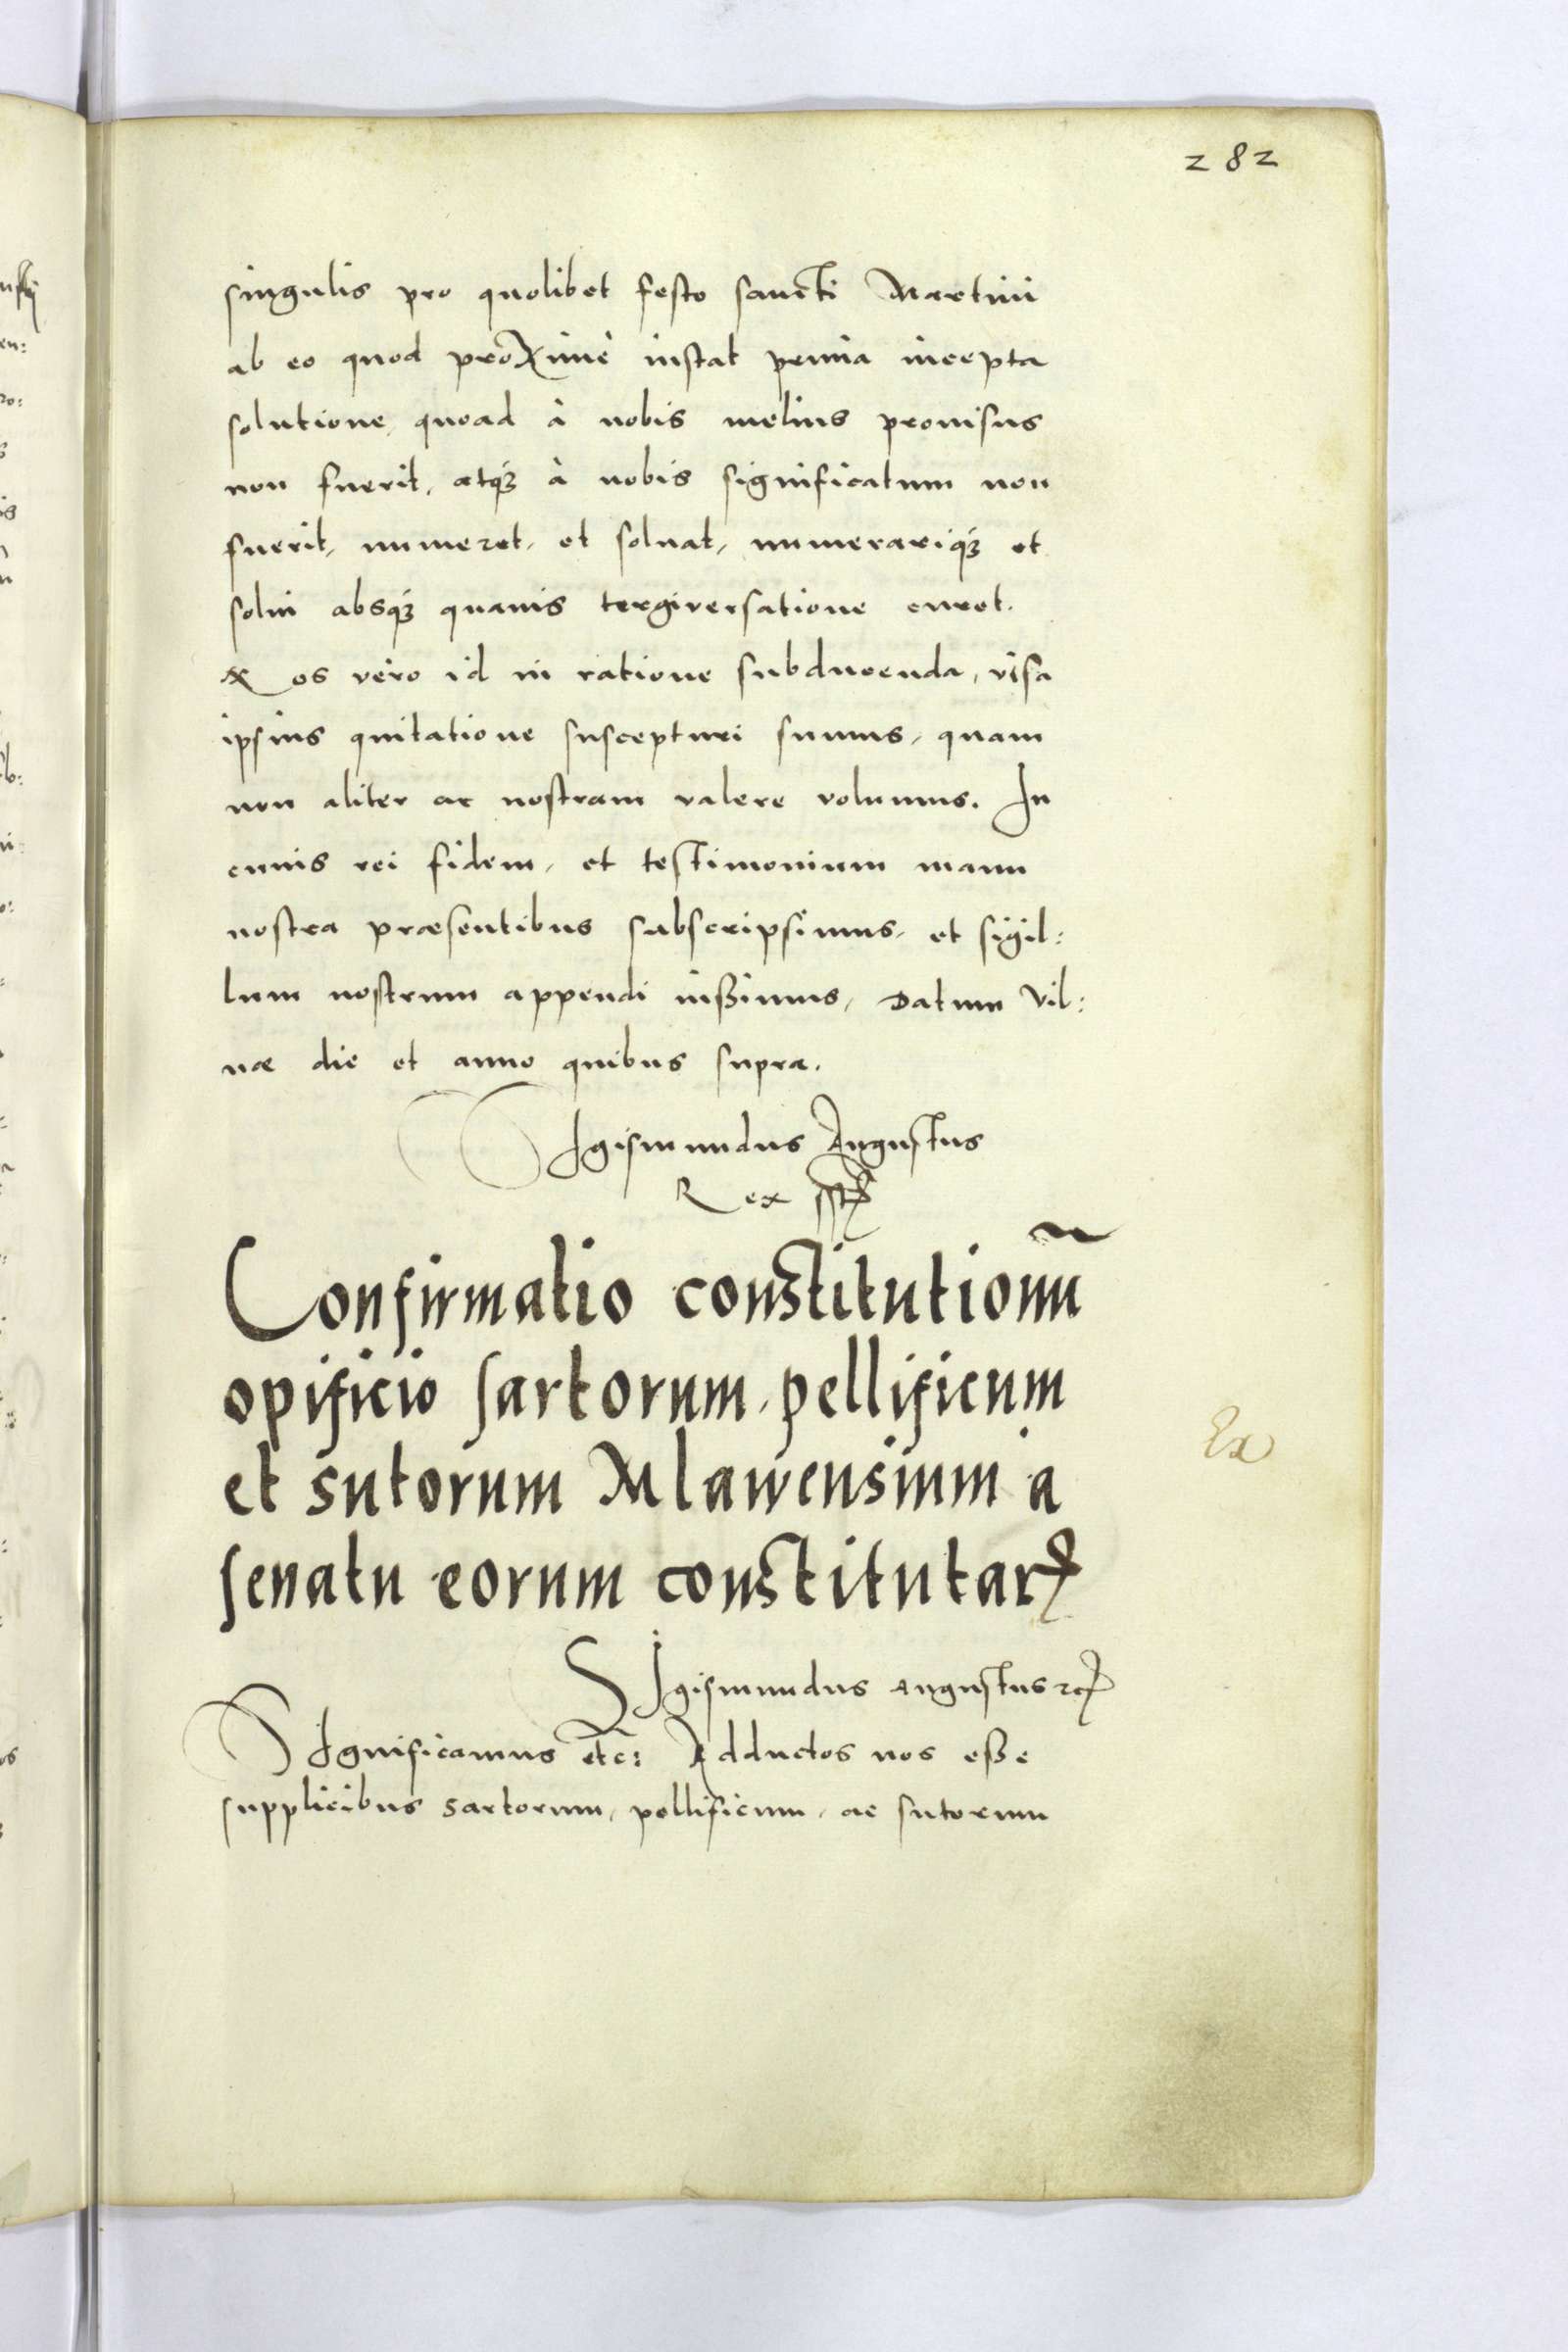 282
singulis pro quolibet festo sancti Martini
ab eo quod proxime instat prima incepta
solutione, quoad à nobis melius provisus
non fuerit, atque à nobis significatum non
fuerit, numeret, et solvat, numerarique et
solvi absque quavis tergiversatione curet.
Nos vero id in ratione subducenda, visa
ipsius quitatione suscepturi sumus, quam
non aliter ac nostram valere volumus. In
cuius rei fidem, et testimonium manu
nostra præsentibus subscripsimus, et sigil:
lum nostrum appendi iußimus, Datum Vil:
næ die et anno quibus supra.
Sigismundus Augustus
Rex sst
Confirmatio constitutionũ
opificio sartorum, pellificum
et sutorum Mlawensium a
senatu eorum constitutarꝝ
Ex
Sigismundus Augustus etc
Significamus etc: Adductos nos eße
supplicibus sartorum, pellificum, ac sutorum